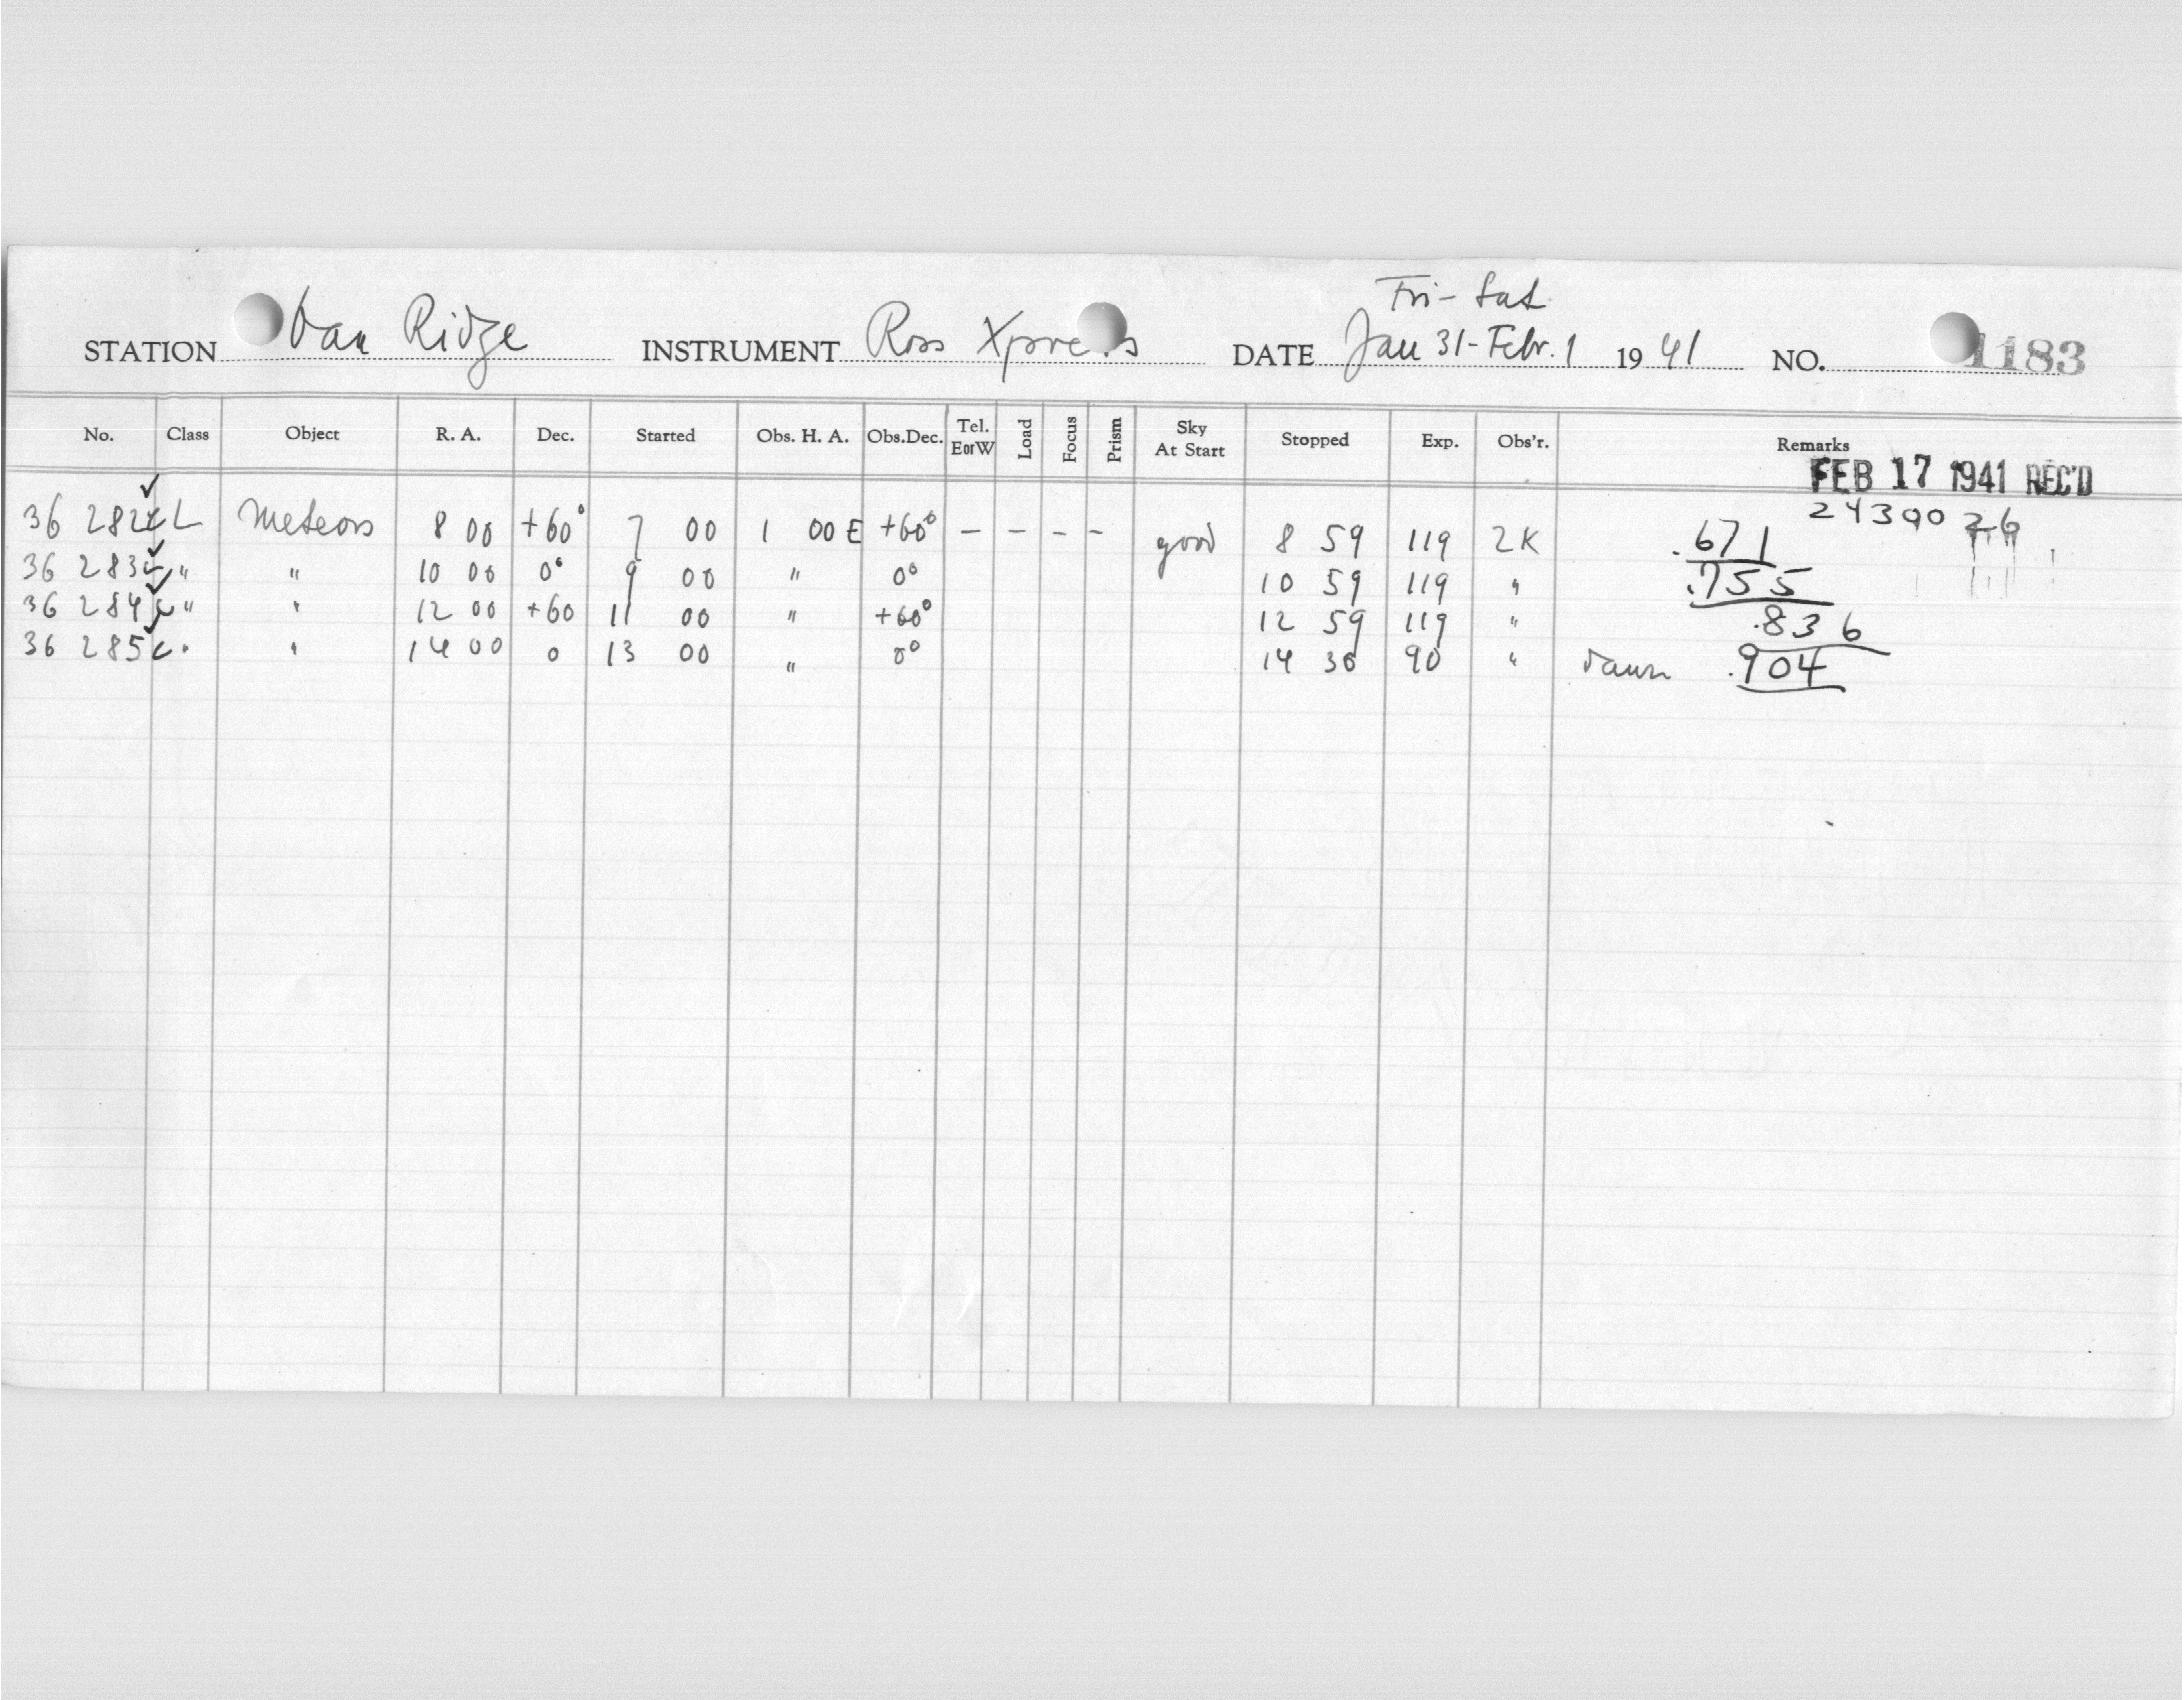 Fri - Sat
STATION Oak Ridge INSTRUMENT Ross Xpress DATE Jan 31 - Febr. 1 1941 NO. 1183
No. Class Object R. A. Dec. Started Obs. H. A. Obs.Dec. Tel. E or W Load Focus Prism Sky At Start Stopped Exp. Obs'r. Remarks
FEB 17 1941 REC'D
24300 26
36 282 ✓ L Meteors 8 00 +60° 7 00 1 00 E +60° — — — — good 8 59 119 2K .671
36 283 ✓ " " 10 00 0° 9 00 " 0° 10 59 119 " .755
36 284 ✓ " " 12 00 +60 11 00 " +60° 12 59 119 " .836
36 285 ✓ " " 14 00 0 13 00 " 0° 14 30 90 " dawn .904